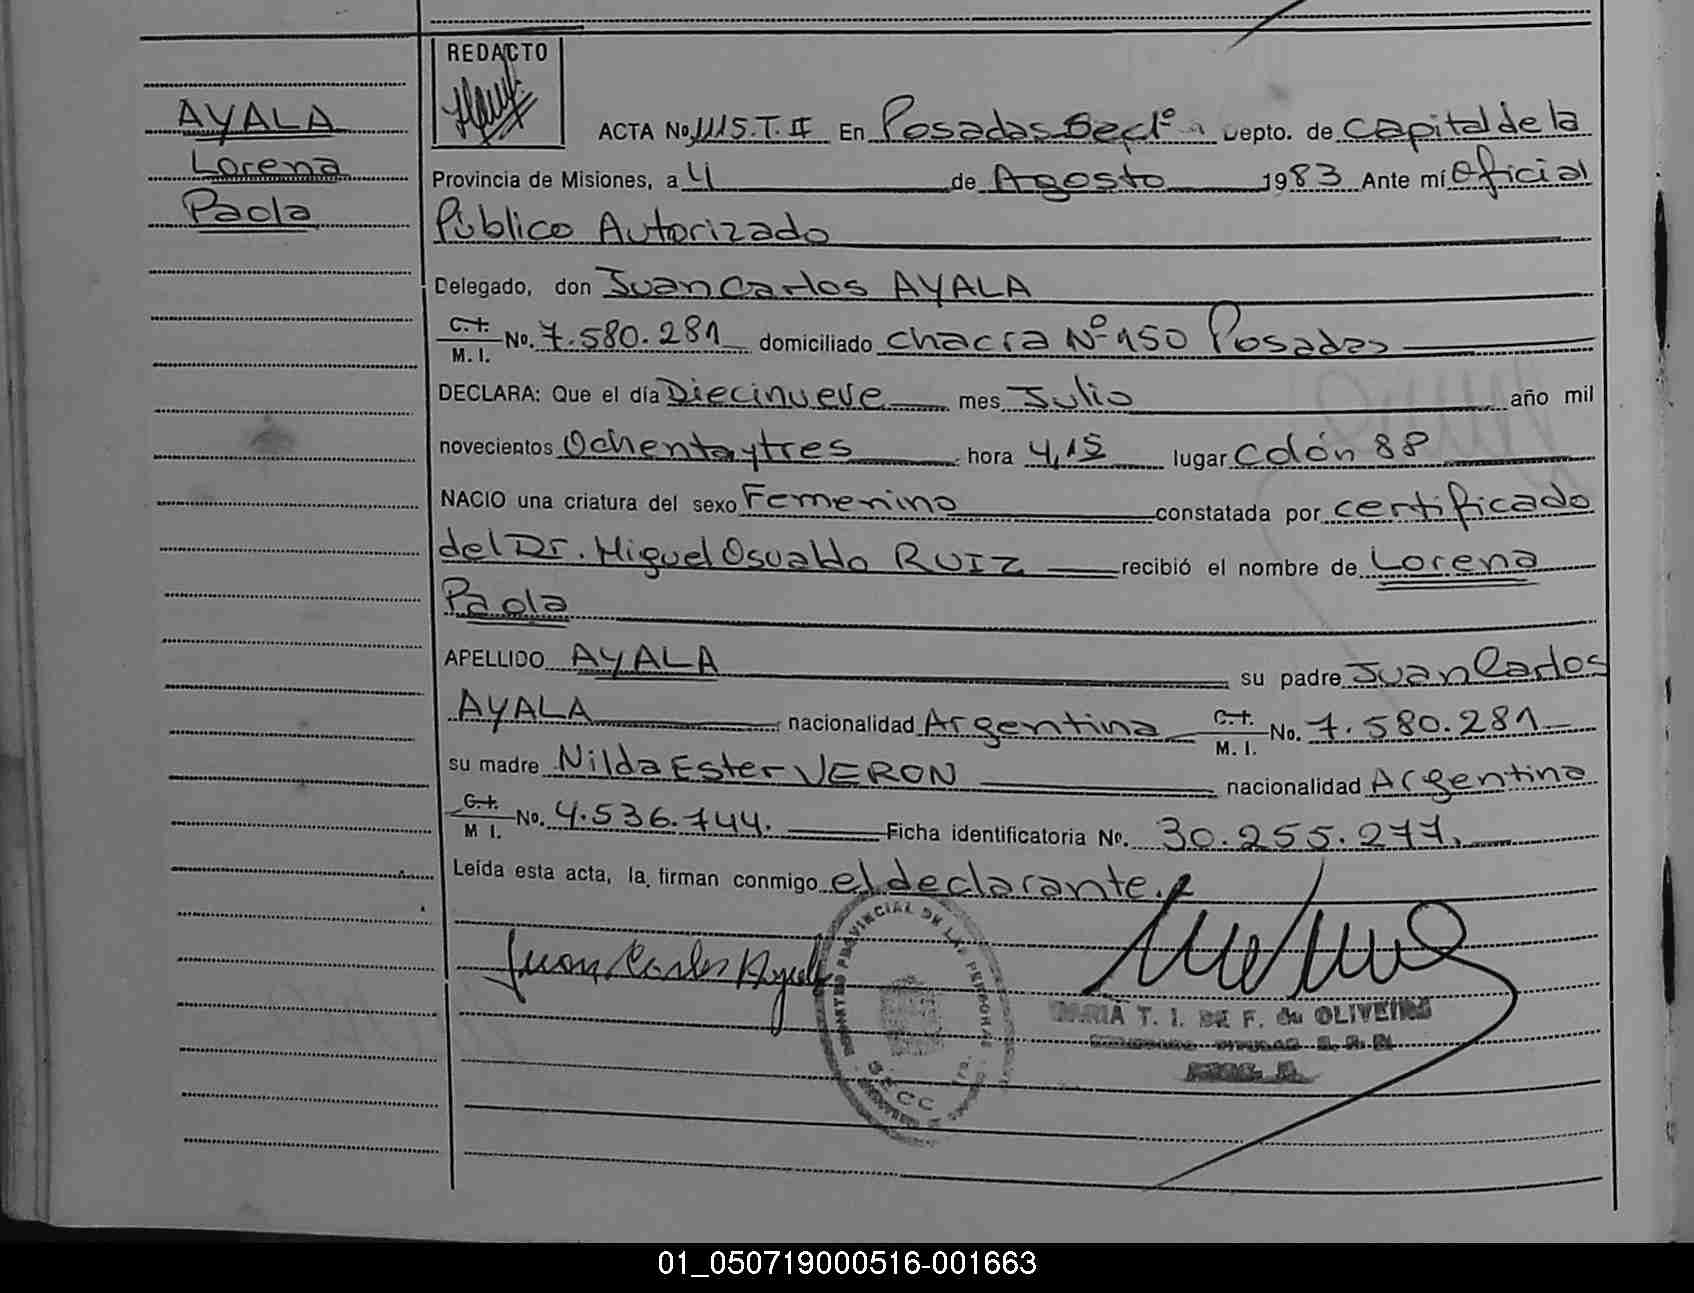 REDACTO
AYALA
Lorena
Paola
ACTA No 1115.T.II En Posadas Sec 1º Depto. de Capital de la
Provincia de Misiones, a 4 de Agosto 1983 Ante mí Oficial
Público Autorizado
Delegado, don Juan Carlos AYALA
C.I. M. I. No. 7.580.281 domiciliado chacra Nº 150 Posadas
DECLARA: Que el día Diecinueve mes Julio año mil
novecientos Ochentaytres hora 4,15 lugar Colón 88
NACIO una criatura del sexo Femenino constatada por certificado
del Dr. Miguel Osvaldo RUIZ recibió el nombre de Lorena
Paola
APELLIDO AYALA su padre Juan Carlos
AYALA nacionalidad Argentina C.I. M. I. No. 7.580.281
su madre Nilda Ester VERON nacionalidad Argentina
C.I. M I. No. 4.536.744. Ficha identificatoria No. 30.255.277.
Leída esta acta, la firman conmigo el declarante.
Juan Carlos Ayala
PROVINCIAL DE LAS PERSONAS
SECC
MARIA T. I. DE F. de OLIVEIRA
01_050719000516-001663